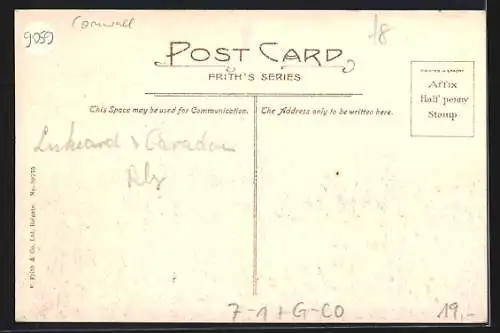 9059
Cornwall
18
POST CARD
FRITH'S SERIES
Affix
Half penny
Stamp
This Space may be used for Communication.
The Address only to be written here.
Liskeard & Caradon
Rly
F. Frith & Co. Ltd. Reigate. No.
7-1+G-CO
19,-